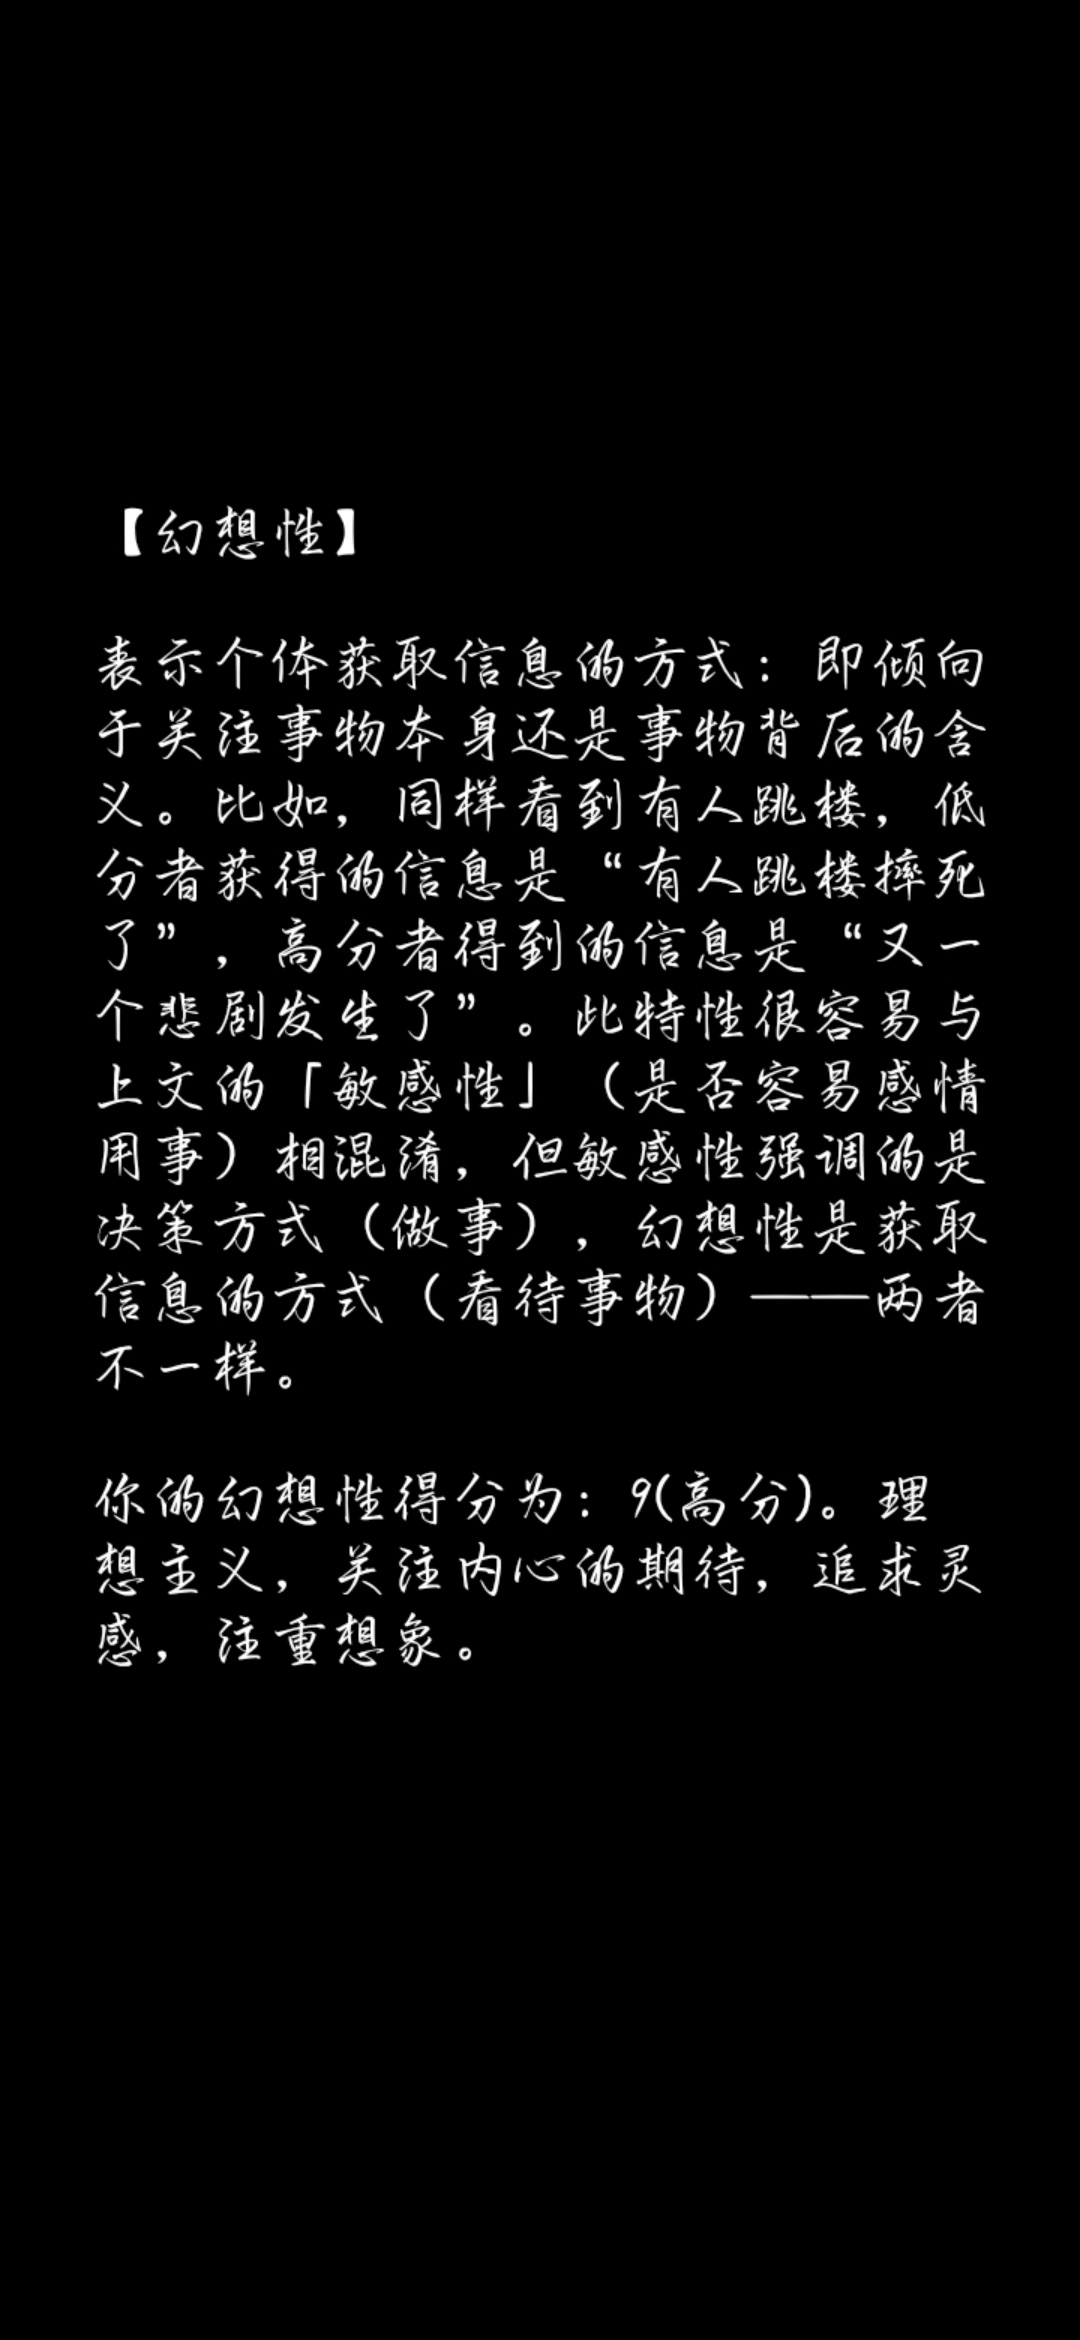 【幻想性】
表示个体获取信息的方式：即倾向
于关注事物本身还是事物背后的含
义。比如，同样看到有人跳楼，低
分者获得的信息是“有人跳楼摔死
了”，高分者得到的信息是“又一
个悲剧发生了”。此特性很容易与
上文的「敏感性」（是否容易感情
用事）相混淆，但敏感性强调的是
决策方式（做事），幻想性是获取
信息的方式（看待事物）——两者
不一样。
你的幻想性得分为：9(高分)。理
想主义，关注内心的期待，追求灵
感，注重想象。